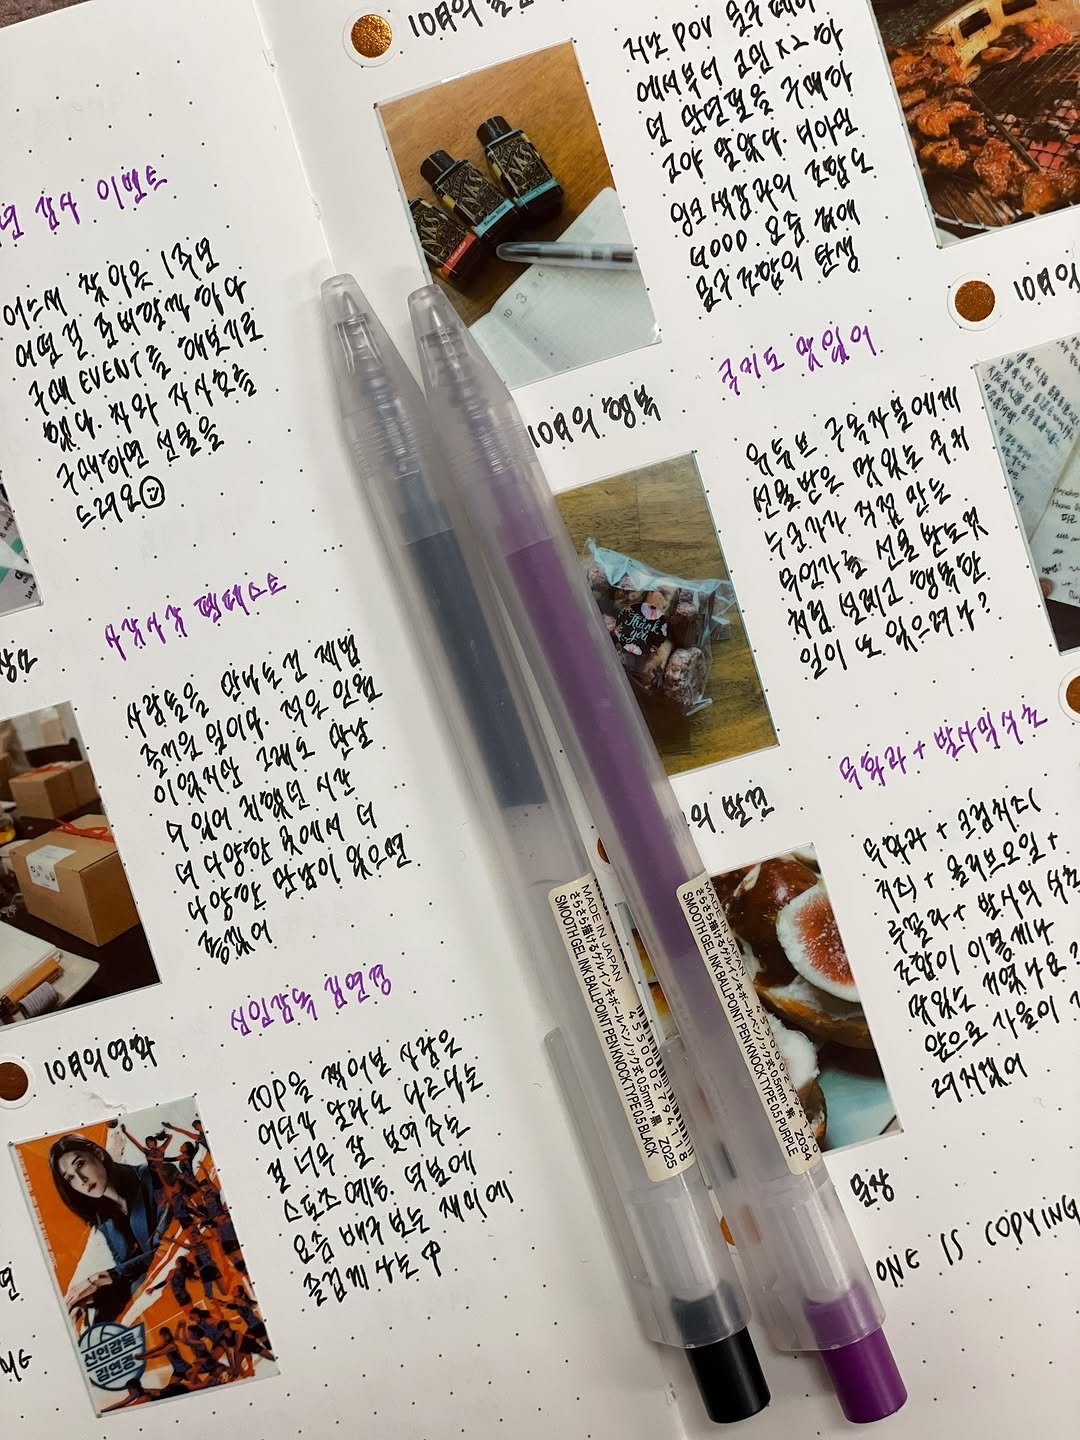 년 감사 이벤트
어느새 찾아온 1주년
어떤 걸 준비할까 하다
구매 EVENT를 해보기로
했다. 차와 사사호를
구매하면 선물을
드려요
사각사각 펜테스트
사람들을 만나는 건 제법
즐거운 일이다. 적은 인원
이었지만 그래도 만날
수 있어 귀했던 시간
더 다양한 곳에서 더
다양한 만남이 있으면
좋겠어
신임감독 김연경
10월의 영화
TOP을 찍어본 사람은
어딘가 달라도 다르다는
걸 너무 잘 보여주는
스포츠 예능. 덕분에
요즘 배구 보는 재미에
즐겁게 사는 中
신인감독
김연경
10월의
저번 POV 문구 페어
에서부터 고민 x2 하
던 만년필을 구매하
고야 말았다. 디아민
잉크 색감과의 조합도
GOOD. 요즘 최애
문구 조합의 탄생
10월의 행복
쿠키도 맛있어
유튜브 구독자분에게
선물 받은 맛있는 쿠키
누군가가 직접 만든
무언가를 선물 받는 것
처럼 설레고 행복한
일이 또 있으려나?
Thank
you
의 발견
무화과 + 발사믹식초
무화과 + 크림치즈(
치즈) + 올리브오일 +
후꿀라 + 발사믹 식초
조합이 이렇게나
맛있는 거였나요?
앞으로 가을이
려지겠어
10월의
문장
ONE IS COPYING
MADE IN JAPAN
さらさら描けるゲルインキボールペンノック式 0.5mm・黒 Z025
SMOOTH GEL INK BALLPOINT PEN KNOCK TYPE 0.5 BLACK
4550002794118
MADE IN JAPAN
さらさら描けるゲルインキボールペンノック式 0.5mm・紫 Z034
SMOOTH GEL INK BALLPOINT PEN KNOCK TYPE 0.5 PURPLE